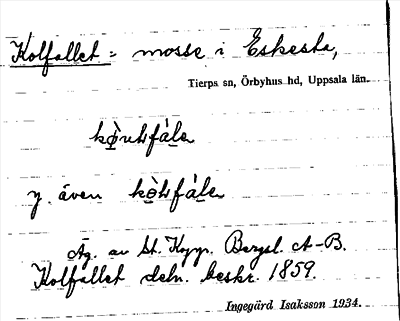 Kolfallet = mosse i Eskesta,
Tierps sn, Örbyhus hd, Uppsala län.
y. även
Äg. av St. Koppr. Bergsl. A-B.
Kolfallet deln. beskr. 1859.
Ingegärd Isaksson 1934.